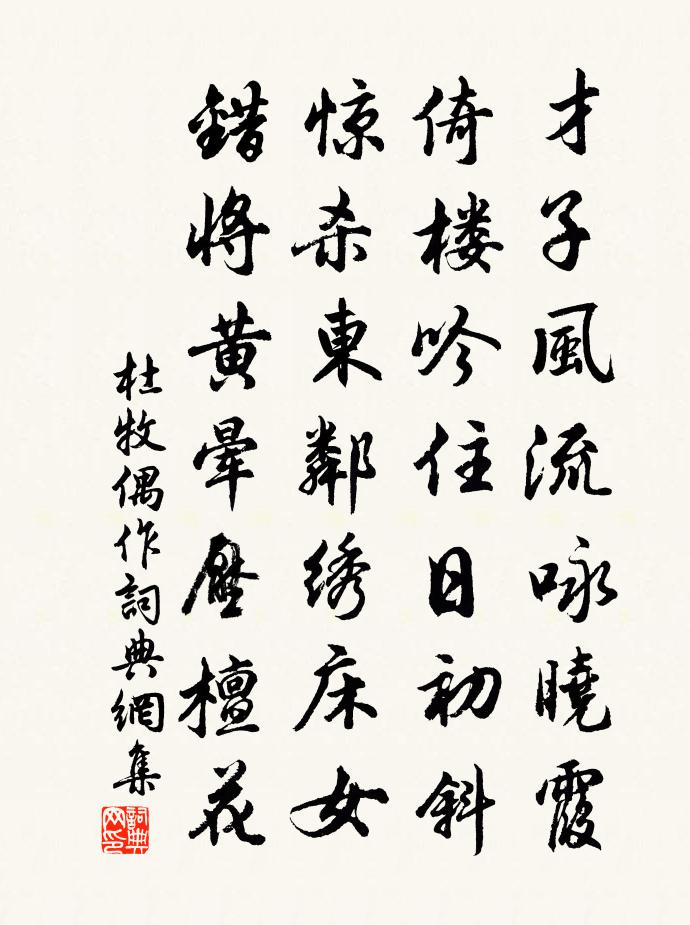 才子風流咏曉霞
倚楼吟住日初斜
惊杀東鄰绣床女
錯將黃暈壓檀花
杜牧偶作詞典網集
詞典网印